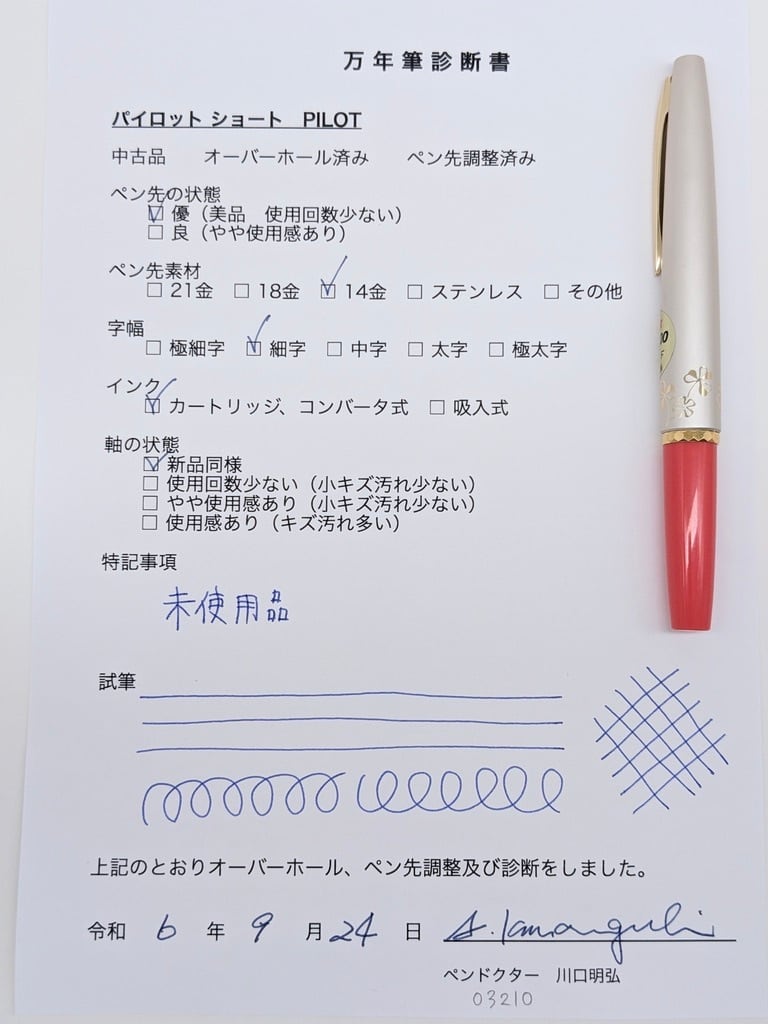 万年筆診断書
パイロット ショート PILOT
中古品 オーバーホール済み ペン先調整済み
ペン先の状態
☑ 優（美品 使用回数少ない）
☐ 良（やや使用感あり）
ペン先素材
☐ 21金 ☐ 18金 ☑ 14金 ☐ ステンレス ☐ その他
字幅
☐ 極細字 ☑ 細字 ☐ 中字 ☐ 太字 ☐ 極太字
インク
☑ カートリッジ、コンバータ式 ☐ 吸入式
軸の状態
☑ 新品同様
☐ 使用回数少ない（小キズ汚れ少ない）
☐ やや使用感あり（小キズ汚れ少ない）
☐ 使用感あり（キズ汚れ多い）
特記事項
未使用品
試筆
上記のとおりオーバーホール、ペン先調整及び診断をしました。
令和 6 年 9 月 24 日
ペンドクター 川口明弘
03210